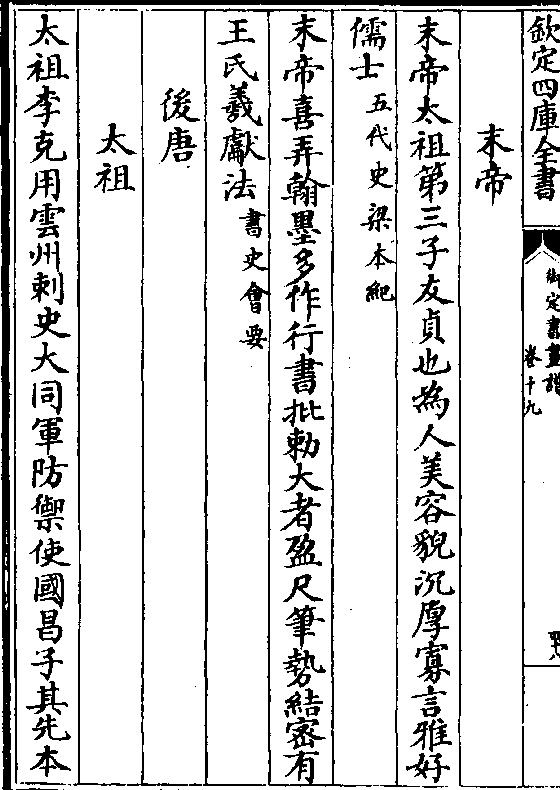 欽定四庫全書
御定書畫譜
卷十九
末帝
末帝太祖第三子友貞也為人美容貌沉厚寡言雅好
儒士五代史梁本紀
末帝喜弄翰墨多作行書批勅大者盈尺筆勢結密有
王氏羲獻法書史會要
後唐
太祖
太祖李克用雲州刺史大同軍防禦使國昌子其先本